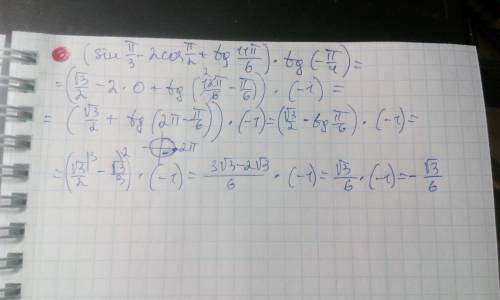 (sin π/3 - 2cos π/2 + tg 11π/6) · tg(-π/4) =
= (√3/2 - 2 · 0 + tg(12π/6 - π/6)) · (-1) =
= (√3/2 + tg(2π - π/6)) · (-1) = (√3/2 - tg π/6) · (-1) =
2π
= (√3/2 - √3/3) · (-1) = 3√3 - 2√3/6 · (-1) = √3/6 · (-1) = - √3/6